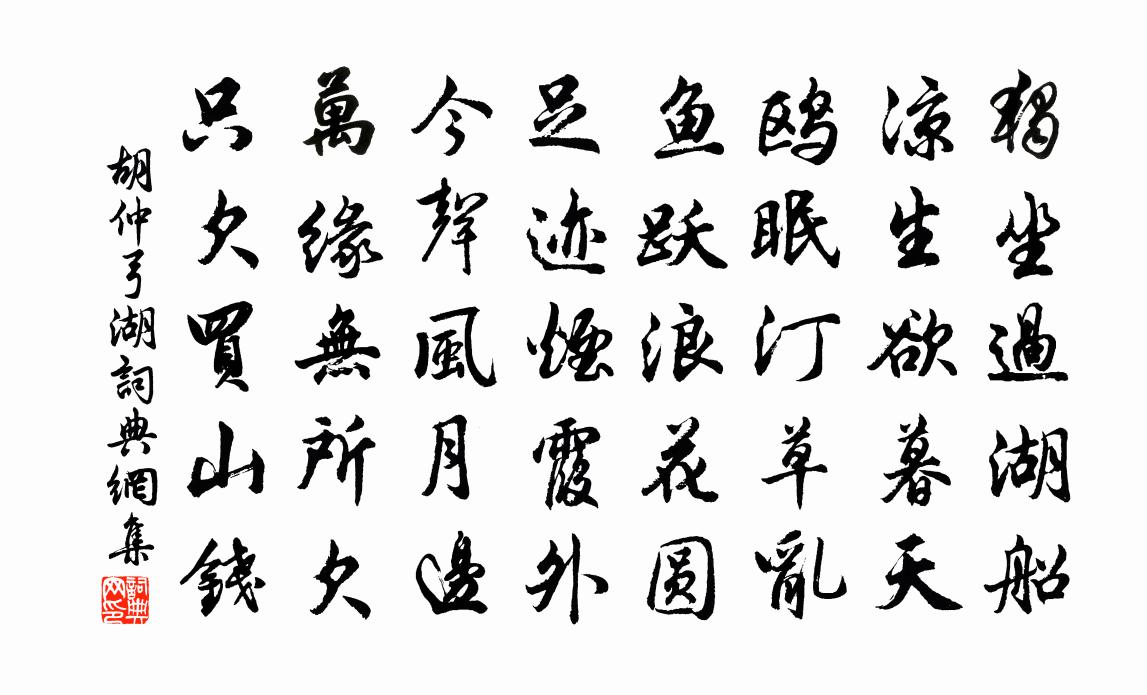 獨坐過湖船
涼生欲暮天
鸥眠汀草亂
鱼跃浪花圆
足迹煙霞外
今聲風月邊
萬緣無所欠
只欠買山錢
胡仲弓湖詞典網集
詞典网印